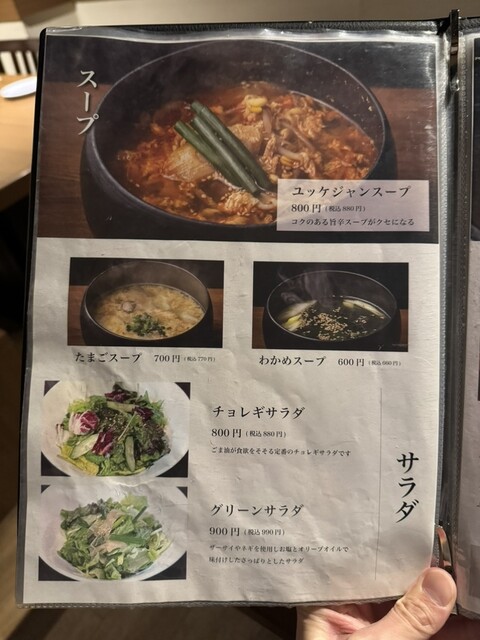 スープ
ユッケジャンスープ
800円（税込880円）
コクのある旨辛スープがクセになる
たまごスープ　700円（税込770円）
わかめスープ　600円（税込660円）
チョレギサラダ
800円（税込880円）
ごま油が食欲をそそる定番のチョレギサラダです
サラダ
グリーンサラダ
900円（税込990円）
ザーサイやネギを使用しお塩とオリーブオイルで
味付けしたさっぱりとしたサラダ